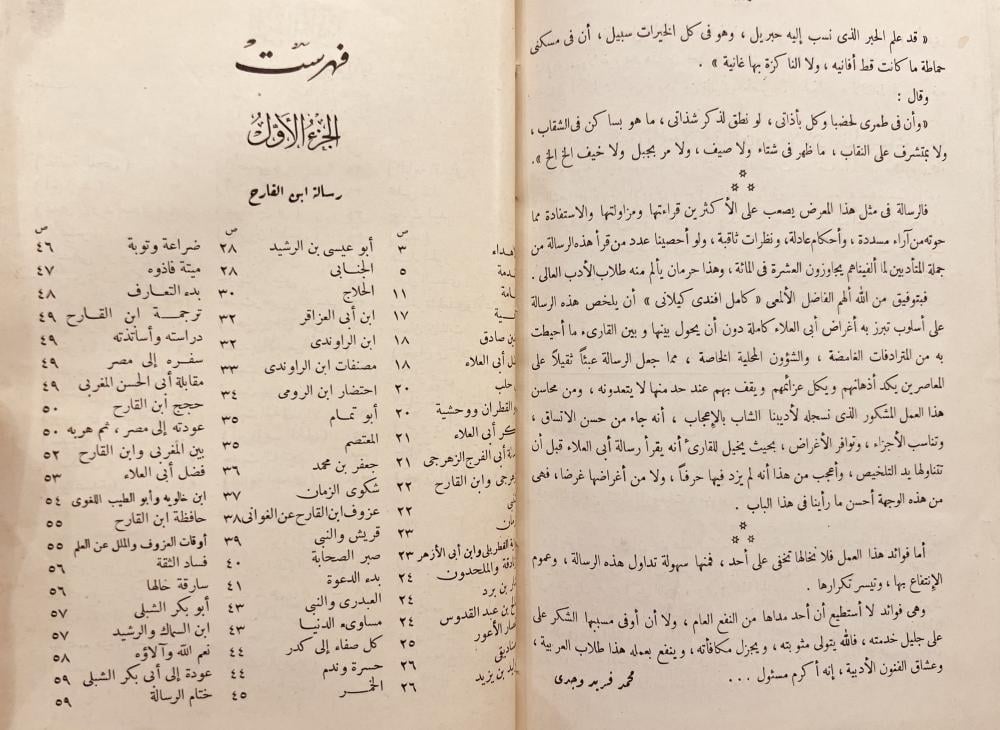 « قد علم الحبر الذى نسب إليه جبريل ، وهو فى كل الخيرات سبيل ، أن فى مسكنى
حماطة ما كانت قط أفانيه ، ولا الناكزة بها غانية » .
وقال :
« وأن فى طمرى لحضبا وكل بأذاتى ، لو نطق لذكر شذاتى ، ما هو بساكن فى الشقاب ،
ولا بمتشرف على النقاب ، ما ظهر فى شتاء ولا صيف ، ولا مر بجبل ولا خيف الخ الخ » .
فالرسالة فى مثل هذا المعرض يصعب على الأكثرين قراءتها ومزاولتها والاستفادة مما
حوته من آراء مسددة ، وأحكام عادلة ، ونظرات ثاقبة ، ولو أحصينا عدد من قرأ هذه الرسالة من
جملة المتأدبين لما ألفيناهم يجاوزون العشرة فى المائة ، وهذا حرمان يألم منه طلاب الأدب العالى .
فبتوفيق من الله ألهم الفاضل الألمعى « كامل افندى كيلانى » أن يلخص هذه الرسالة
على أسلوب تبرز به أغراض أبى العلاء كاملة دون أن يحول بينها و بين القارىء ما أحيطت
به من المترادفات الغامضة ، والشؤون المحلية الخاصة ، مما جعل الرسالة عبئاً ثقيلاً على
المعاصرين يكد أذهانهم ويكل عزائمهم ويقف بهم عند حد منها لا يتعدونه ، ومن محاسن
هذا العمل المشكور الذى نسجله لأديبنا الشاب بالإعجاب ، أنه جاء من حسن الاتساق ،
وتناسب الأجزاء ، وتوافر الأغراض ، بحيث يخيل للقارئ أنه يقرأ رسالة أبى العلاء قبل أن
تتناولها يد التلخيص ، وأعجب من هذا أنه لم يزد فيها حرفاً ، ولا من أغراضها غرضا ، فهى
من هذه الوجهة أحسن ما رأينا فى هذا الباب .
أما فوائد هذا العمل فلا نخالها تخفى على أحد ، فمنها سهولة تداول هذه الرسالة ، وعموم
الإنتفاع بها ، وتيسر تكرارها .
وهى فوائد لا أستطيع أن أحد مداها من النفع العام ، ولا أن أوفى مسببها الشكر على
على جليل خدمته ، فالله يتولى مثوبته ، ويجزل مكافأته ، وينفع بعمله هذا طلاب العربية ،
وعشاق الفنون الأدبية ، إنه أكرم مسئول . . .
محمد فريد وجدى
فهرست
الجزء الأول
رسالة ابن القارح
ص
هداء ٣
دمة ٥
امة ١١
١٧
بن صادق ١٨
ل أبى العلاء ١٨
حلب ٢٠
القطران ووحشية ٢٠
كر أبى العلاء ٢١
ة أبى الفرج الزهرجى ٢١
جى وابن القارح ٢٢
٢٢
٢٣
ة القطربلى وابن أبى الأزهر ٢٣
ادقة والملحدون ٢٤
ر بن برد ٢٤
ح بن عبد القدوس ٢٤
صار الأعور ٢٥
صناديقى ٢٦
ليد بن يزيد ٢٦
ص
أبو عيسى بن الرشيد ٢٨
الجنابى ٢٨
الحلاج ٣٠
ابن أبى العزاقر ٣٢
ابن الراوندى ٣٢
مصنفات ابن الراوندى ٣٣
احتضار ابن الرومى ٣٤
أبو تمام ٣٥
المعتصم ٣٥
جعفر بن محمد ٣٦
شكوى الزمان ٣٧
عزوف ابن القارح عن الغوانى ٣٨
قريش والنبى ٣٩
صبر الصحابة ٤٠
بدء الدعوة ٤١
العبدرى والنبى ٤٣
مساوىء الدنيا ٤٣
كل صفاء إلى كدر ٤٤
حسرة وندم ٤٤
الخمر ٤٥
ص
ضراعة وتوبة ٤٦
ميتة فاذوه ٤٧
بدء التعارف ٤٨
ترجمة ابن القارح ٤٩
دراسته وأساتذته ٤٩
سفره إلى مصر ٤٩
مقابلة أبى الحسن المغربى ٤٩
حجج ابن القارح ٥٠
عودته إلى مصر ، ثم هربه ٥٠
بين المغربى وابن القارح ٥٢
فضل أبى العلاء ٥٣
ابن خالويه وأبو الطيب اللغوى ٥٤
حافظة ابن القارح ٥٥
أوقات العزوف والملل عن العلم ٥٥
فساد الثقة ٥٦
سارقة خالها ٥٦
أبو بكر الشبلى ٥٧
ابن السماك والرشيد ٥٧
نعم الله وآلاؤه ٥٨
عودة إلى أبى بكر الشبلى ٥٩
ختام الرسالة ٥٩